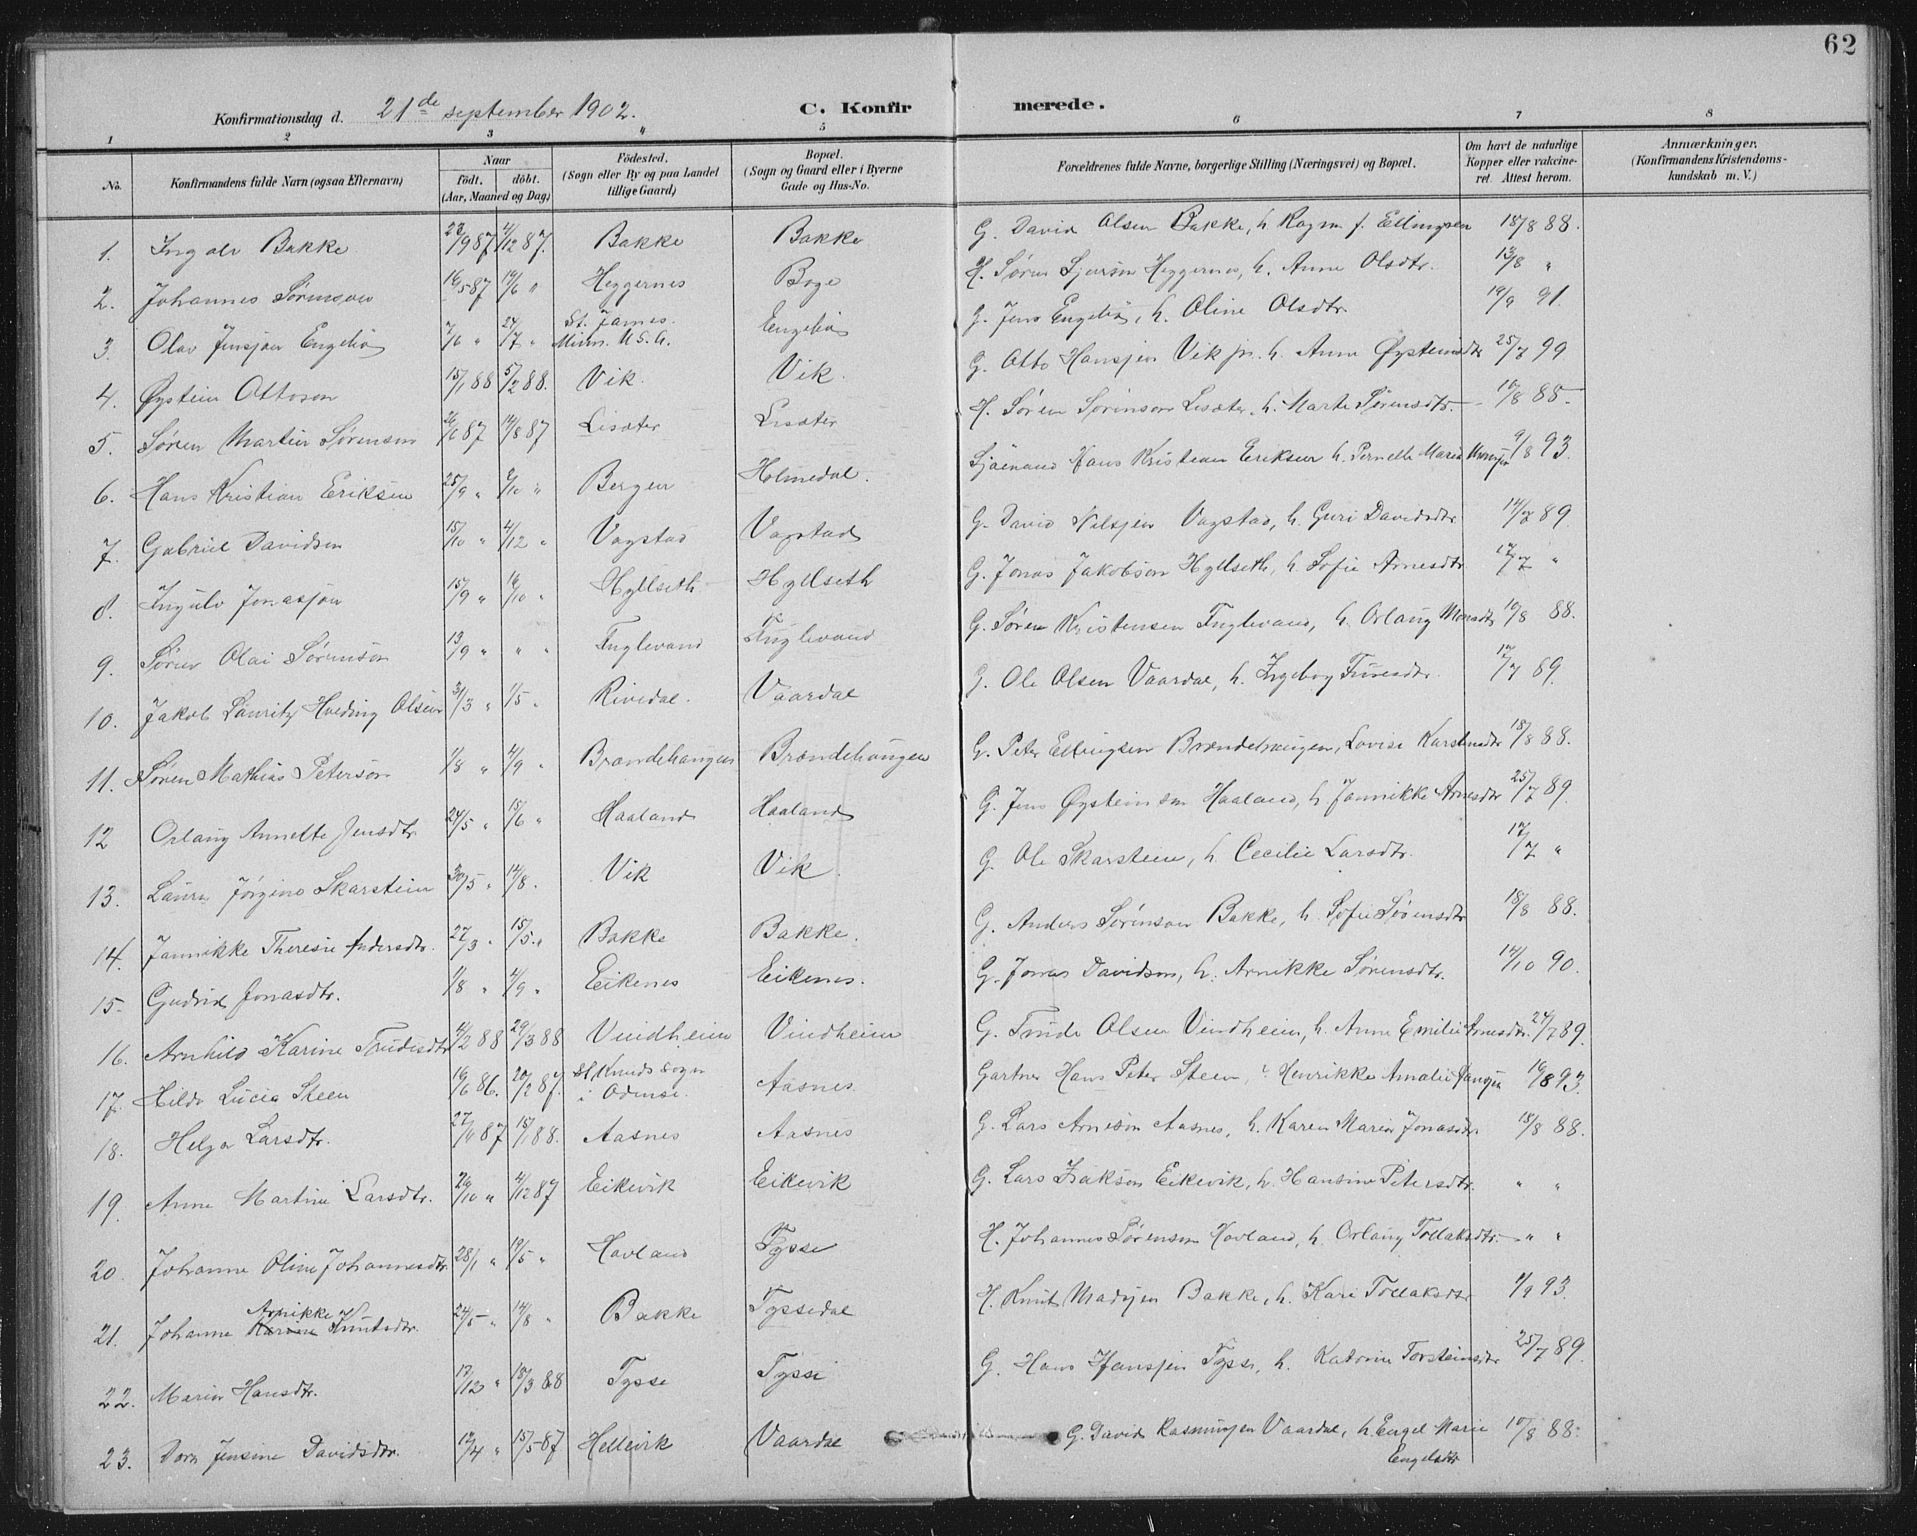 62
Konfirmationsdag d. 21de september 1902. C. Konfirmerede.
1 2 3 " 5 6 7 8
No. Konfirmandens fulde Navn (ogsaa Efternavn) Naar födt. döbt. (Aar, Maaned og Dag) Födested. (Sogn eller By og paa Landet tillige Gaard) Bopæl. (Sogn og Gaard eller i Byerne Gade og Hus-No. Forældrenes fulde Navne, borgerlige Stilling (Næringsvei) og Bopæl. Om havt de naturlige Kopper eller vaccineret. Attest herom. Anmærkninger. (Konfirmandens Kristendomskundskab m. V.)
1. Ingolv Bakke 23/9 87 4/12 87. Bakke Bakke G. David Olsen Bakke, h. Ragna f. Ellingsen 18/8 88.
2. Johannes Sørensen 16/5 87 19/6 " Heggernes Boge H. Søren Heggernes, h. Anne Olsdtr. 13/8 "
3. Olav Jensen Engebø 7/6 " 24/7 " St. James. Minn. U.S.A. Engebø G. Jens Engebø, h. Oline Olsdtr. 19/9 91.
4. Øystein Ottoson 15/1 88 5/2 88. Vik. Vik. G. Otto Hansen Vik jr. h. Anne Øysteinsdtr 25/7 99
5. Søren Martin Sørenson 26/6 87 14/8 87 Lisæter Lisæter H. Søren Sørenson Lisæter, h. Marte Sørensdtr. 10/8 88
6. Hans Kristian Eriksen 25/9 " 9/10 " Bergen Holmedal. Sjømand Hans Kristian Eriksen h. Pernelle Marie 9/8 93.
7. Gabriel Davidsen 15/10 " 4/12 " Vagstad Vagstad G. David Nilsen Vagstad, h. Guri Davidsdtr 14/7 89
8. Ingulv Jonassen 15/9 " 16/10 " Hyllseth Hyllseth G. Jonas Jakobson Hyllseth, h. Sofie Arnesdtr 17/7 "
9. Søren Olai Sørenson 13/9 " " " Fuglevand Fuglevand G. Søren Kristensen Fuglevand, h. Orlaug Monsdtr 10/8 88.
10. Jakob Lauritz Olsen 31/3 " 1/5 " Rivedal. Vaardal G. Ole Olsen Vaardal, h. Ingeborg 17/7 89.
11. Søren Mathias Peterson 1/8 " 4/9 " Brandehaugen Brændehaugen G. Peter Ellingsen Brændehaugen, Lovise Karstensdtr 18/8 88.
12 Orlaug Annette Jensdtr. 24/5 " 15/6 " Haaland Haaland G. Jens Øysteinson Haaland, h. Jannikke Arnesdtr 25/7 89.
13. Laura Jørgine Skarstein 30/5 " 14/8. Vik Vik. G. Ole Skarstein, h. Cecilie Larsdtr. 17/7 "
14. Jannikke Theresie Andersdtr. 27/3 " 15/5 " Bakke Bakke. G. Anders Sørenson Bakke, h. Sofie Sørensdtr 18/8 88.
15. Gudrid Jonasdtr. 1/8 " 4/9 " Eikenes Eikenes. G. Jonas Davidson, h. Arnikke Sørensdtr. 14/10 90.
16. Arnhild Karine Trudesdtr 4/2 88 29/3 88 Vindheim Vindheim G. Trude Olsen Vindheim, h. Anne Emilie Arnesdtr. 24/7 89.
17. Hilda Lucia Steen 16/6 86. 20/2 87. St. Knuds Sogn i Odense. Aasnes. Gartner Hans Peter Steen, Henrikke Amalie 19/8 93.
18. Helga Larsdtr. 27/11 87 15/1 88. Aasnes Aasnes G. Lars Arneson Aasnes, h. Karen Maria Jonasdtr. 18/8 88.
19. Anne Martine Larsdtr. 26/10 " 4/12 87 Eikevik Eikevik G. Lars Isakson Eikevik, h. Hansine Petersdtr. " "
20. Johanne Oline Johannesdtr. 28/1 " 19/5 " Hovland Tysse H. Johannes Sørenson Hovland, h. Orlaug Tollaksdtr. " "
21. Johanne Arnikke Knutsdtr. 24/5 " 14/8 " Bakke Tyssedal H. Knut Madsen Bakke, h. Kari Tollaksdtr 1/9 93.
22. Marie Hansdtr. 17/12 " 18/3 88 Tysse Tysse G. Hans Hansen Tysse, h. Katrine Torsteinsdtr 25/7 89.
23. Dora Jensine Davidsdtr. 12/4 " 15/5 87 Hellevik Vaardal G. David Rasmussen Vaardal, h. Engel Marie 10/8 88.
Engelsdtr